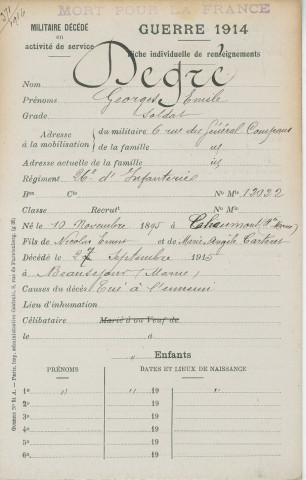 MORT POUR LA FRANCE
MILITAIRE DÉCÉDÉ
en
activité de service
GUERRE 1914
Fiche individuelle de renseignements
Nom Degré
Prénoms Georges Emile
Grade Soldat
Adresse à la mobilisation
du militaire 6 rue du Général Compans
de la famille id
Adresse actuelle de la famille id
Régiment 26e d'Infanterie
Bon Cie No Mle 13032
Classe Recrut No Mle
Né le 10 Novembre 1895 à Chaumont (Hte Marne)
Fils de Nicolas Ernest et de Marie Angèle Carteret
Décédé le 27 Septembre 1915
à Beauséjour (Marne)
Causes du décès Tué à l'ennemi
Lieu d'inhumation
Célibataire Marié à ou Veuf de
le "
Enfants
PRÉNOMS DATES ET LIEUX DE NAISSANCE
1o " " 19 "
2o 19
3o 19
4o 19
5o 19
6o 19